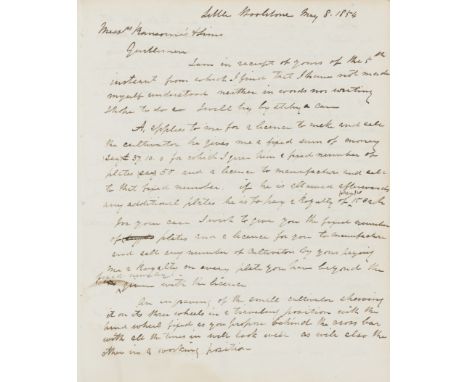 Little Woolstone May 8. 1854
Messrs Ransomes & Sims
Gentlemen
I am in receipt of yours of the 5th
instant from which I find that I have not made
myself understood neither in words nor writing
I hope to do so I will try by stating a case
A, applies to me for a licence to make and sell
the cultivator he gives me a fixed sum of money
say £37.10.0 for which I give him a fixed number of
plates say 50 and a licence to manufacture and sell
to that fixed number. if he is afterwards
any additional plates he is to pay a Royalty of 15/ each
In your case I wish to give you the fixed number
of plates and a licence for you to manufacture
and sell any number of Cultivators by your paying
me a Royalty on every plate you have beyond the
fixed number
given with the licence
An engraving of the small cultivator showing
it on its three wheels in a travelling position with the
hind wheel fixed as you propose behind the cross bar
with all the tines in will look well as will also the
other in a working position